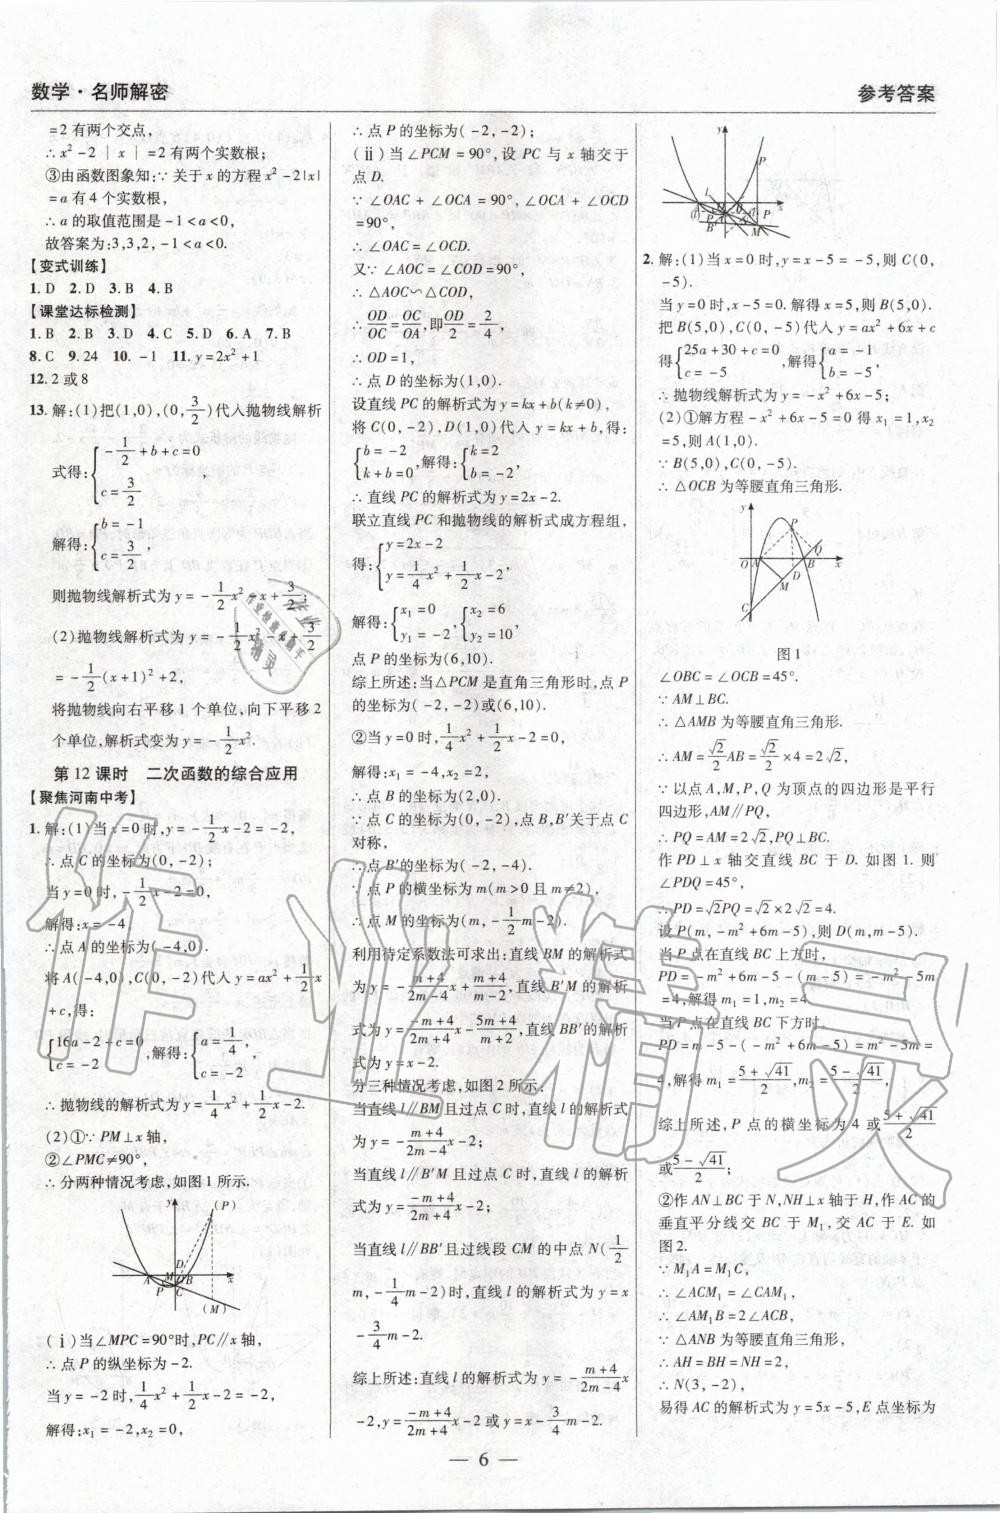 数学·名师解密
参考答案
=2有两个交点,
∴x²-2|x|=2有两个实数根;
③由函数图象知:∵关于x的方程x²-2|x|
=a有4个实数根,
∴a的取值范围是-1<a<0,
故答案为:3,3,2,-1<a<0.
【变式训练】
1.D 2.D 3.B 4.B
【课堂达标检测】
1.B 2.B 3.D 4.C 5.D 6.A 7.B
8.C 9.24 10.-1 11.y=2x²+1
12.2或8
13.解:(1)把(1,0),(0,3/2)代入抛物线解析
式得:{-1/2+b+c=0
c=3/2 ,
解得:{b=-1
c=3/2 ,
则抛物线解析式为y=-1/2x²-x+3/2;
(2)抛物线解析式为y=-1/2x²-x+3/2
=-1/2(x+1)²+2,
将抛物线向右平移1个单位,向下平移2
个单位,解析式变为y=-1/2x².
第12课时 二次函数的综合应用
【聚焦河南中考】
1.解:(1)当x=0时,y=-1/2x-2=-2,
∴点C的坐标为(0,-2);
当y=0时,-1/2x-2=0,
解得:x=-4,
∴点A的坐标为(-4,0).
将A(-4,0),C(0,-2)代入y=ax²+1/2x
+c,得:
{16a-2+c=0
c=-2 ,解得:{a=1/4
c=-2 ,
∴抛物线的解析式为y=1/4x²+1/2x-2.
(2)①∵PM⊥x轴,
②∠PMC≠90°,
∴分两种情况考虑,如图1所示.
y (P) D A M O B x P C (M)
(ⅰ)当∠MPC=90°时,PC∥x轴,
∴点P的纵坐标为-2.
当y=-2时,1/4x²+1/2x-2=-2,
解得:x₁=-2,x₂=0,
∴点P的坐标为(-2,-2);
(ⅱ)当∠PCM=90°,设PC与x轴交于
点D.
∵∠OAC+∠OCA=90°,∠OCA+∠OCD
=90°,
∴∠OAC=∠OCD.
又∵∠AOC=∠COD=90°,
∴△AOC∽△COD,
∴OD/OC=OC/OA,即OD/2=2/4,
∴OD=1,
∴点D的坐标为(1,0).
设直线PC的解析式为y=kx+b(k≠0),
将C(0,-2),D(1,0)代入y=kx+b,得:
{b=-2
k+b=0,解得:{k=2
b=-2,
∴直线PC的解析式为y=2x-2.
联立直线PC和抛物线的解析式成方程组,
得:{y=2x-2
y=1/4x²+1/2x-2,
解得:{x₁=0
y₁=-2,{x₂=6
y₂=10,
点P的坐标为(6,10).
综上所述:当△PCM是直角三角形时,点P
的坐标为(-2,-2)或(6,10).
②当y=0时,1/4x²+1/2x-2=0,
解得:x₁=-4,x₂=2,
∴点B的坐标为(2,0).
∵点C的坐标为(0,-2),点B,B′关于点C
对称,
∴点B′的坐标为(-2,-4).
∵点P的横坐标为m(m>0且m≠2),
∴点M的坐标为(m,-1/2m-2).
利用待定系数法可求出:直线BM的解析式
为y=-(m+4)/(2m-4)x+(m+4)/(m-2),直线B′M的解析
式为y=(-m+4)/(2m+4)x-(5m+4)/(m+2),直线BB′的解析
式为y=x-2.
分三种情况考虑,如图2所示:
当直线l∥BM且过点C时,直线l的解析式
为y=-(m+4)/(2m-4)x-2;
当直线l∥B′M且过点C时,直线l的解析
式为y=(-m+4)/(2m+4)x-2;
当直线l∥BB′且过线段CM的中点N(1/2
m,-1/4m-2)时,直线l的解析式为y=x
-3/4m-2.
综上所述:直线l的解析式为y=-(m+4)/(2m-4)x
-2,y=(-m+4)/(2m+4)x-2或y=x-3/4m-2.
2.解:(1)当x=0时,y=x-5=-5,则C(0,
-5).
当y=0时,x-5=0.解得x=5,则B(5,0).
把B(5,0),C(0,-5)代入y=ax²+6x+c
得{25a+30+c=0
c=-5 ,解得{a=-1
b=-5,
∴抛物线解析式为y=-x²+6x-5;
(2)①解方程-x²+6x-5=0得x₁=1,x₂
=5,则A(1,0).
∵B(5,0),C(0,-5).
∴△OCB为等腰直角三角形.
y P Q O A B x D M C
图1
∠OBC=∠OCB=45°.
∵AM⊥BC.
∴△AMB为等腰直角三角形.
∴AM=√2/2AB=√2/2×4=2√2.
∵以点A,M,P,Q为顶点的四边形是平行
四边形,AM∥PQ,
∴PQ=AM=2√2,PQ⊥BC.
作PD⊥x轴交直线BC于D.如图1.则
∠PDQ=45°,
∴PD=√2PQ=√2×2√2=4.
设P(m,-m²+6m-5),则D(m,m-5).
当P点在直线BC上方时,
PD=-m²+6m-5-(m-5)=-m²-5m
=4,解得m₁=1,m₂=4.
当P点在直线BC下方时,
PD=m-5-(-m²+6m-5)=m²-5m=
4,解得m₁=(5+√41)/2,m₂=(5-√41)/2,
综上所述,P点的横坐标为4或(5+√41)/2
或(5-√41)/2;
②作AN⊥BC于N,NH⊥x轴于H,作AC的
垂直平分线交BC于M₁,交AC于E.如
图2.
∵M₁A=M₁C,
∴∠ACM₁=∠CAM₁,
∴∠AM₁B=2∠ACB,
∵△ANB为等腰直角三角形,
∴AH=BH=NH=2,
∴N(3,-2),
易得AC的解析式为y=5x-5,E点坐标为
— 6 —
作业精灵
作业检查小助手
精灵